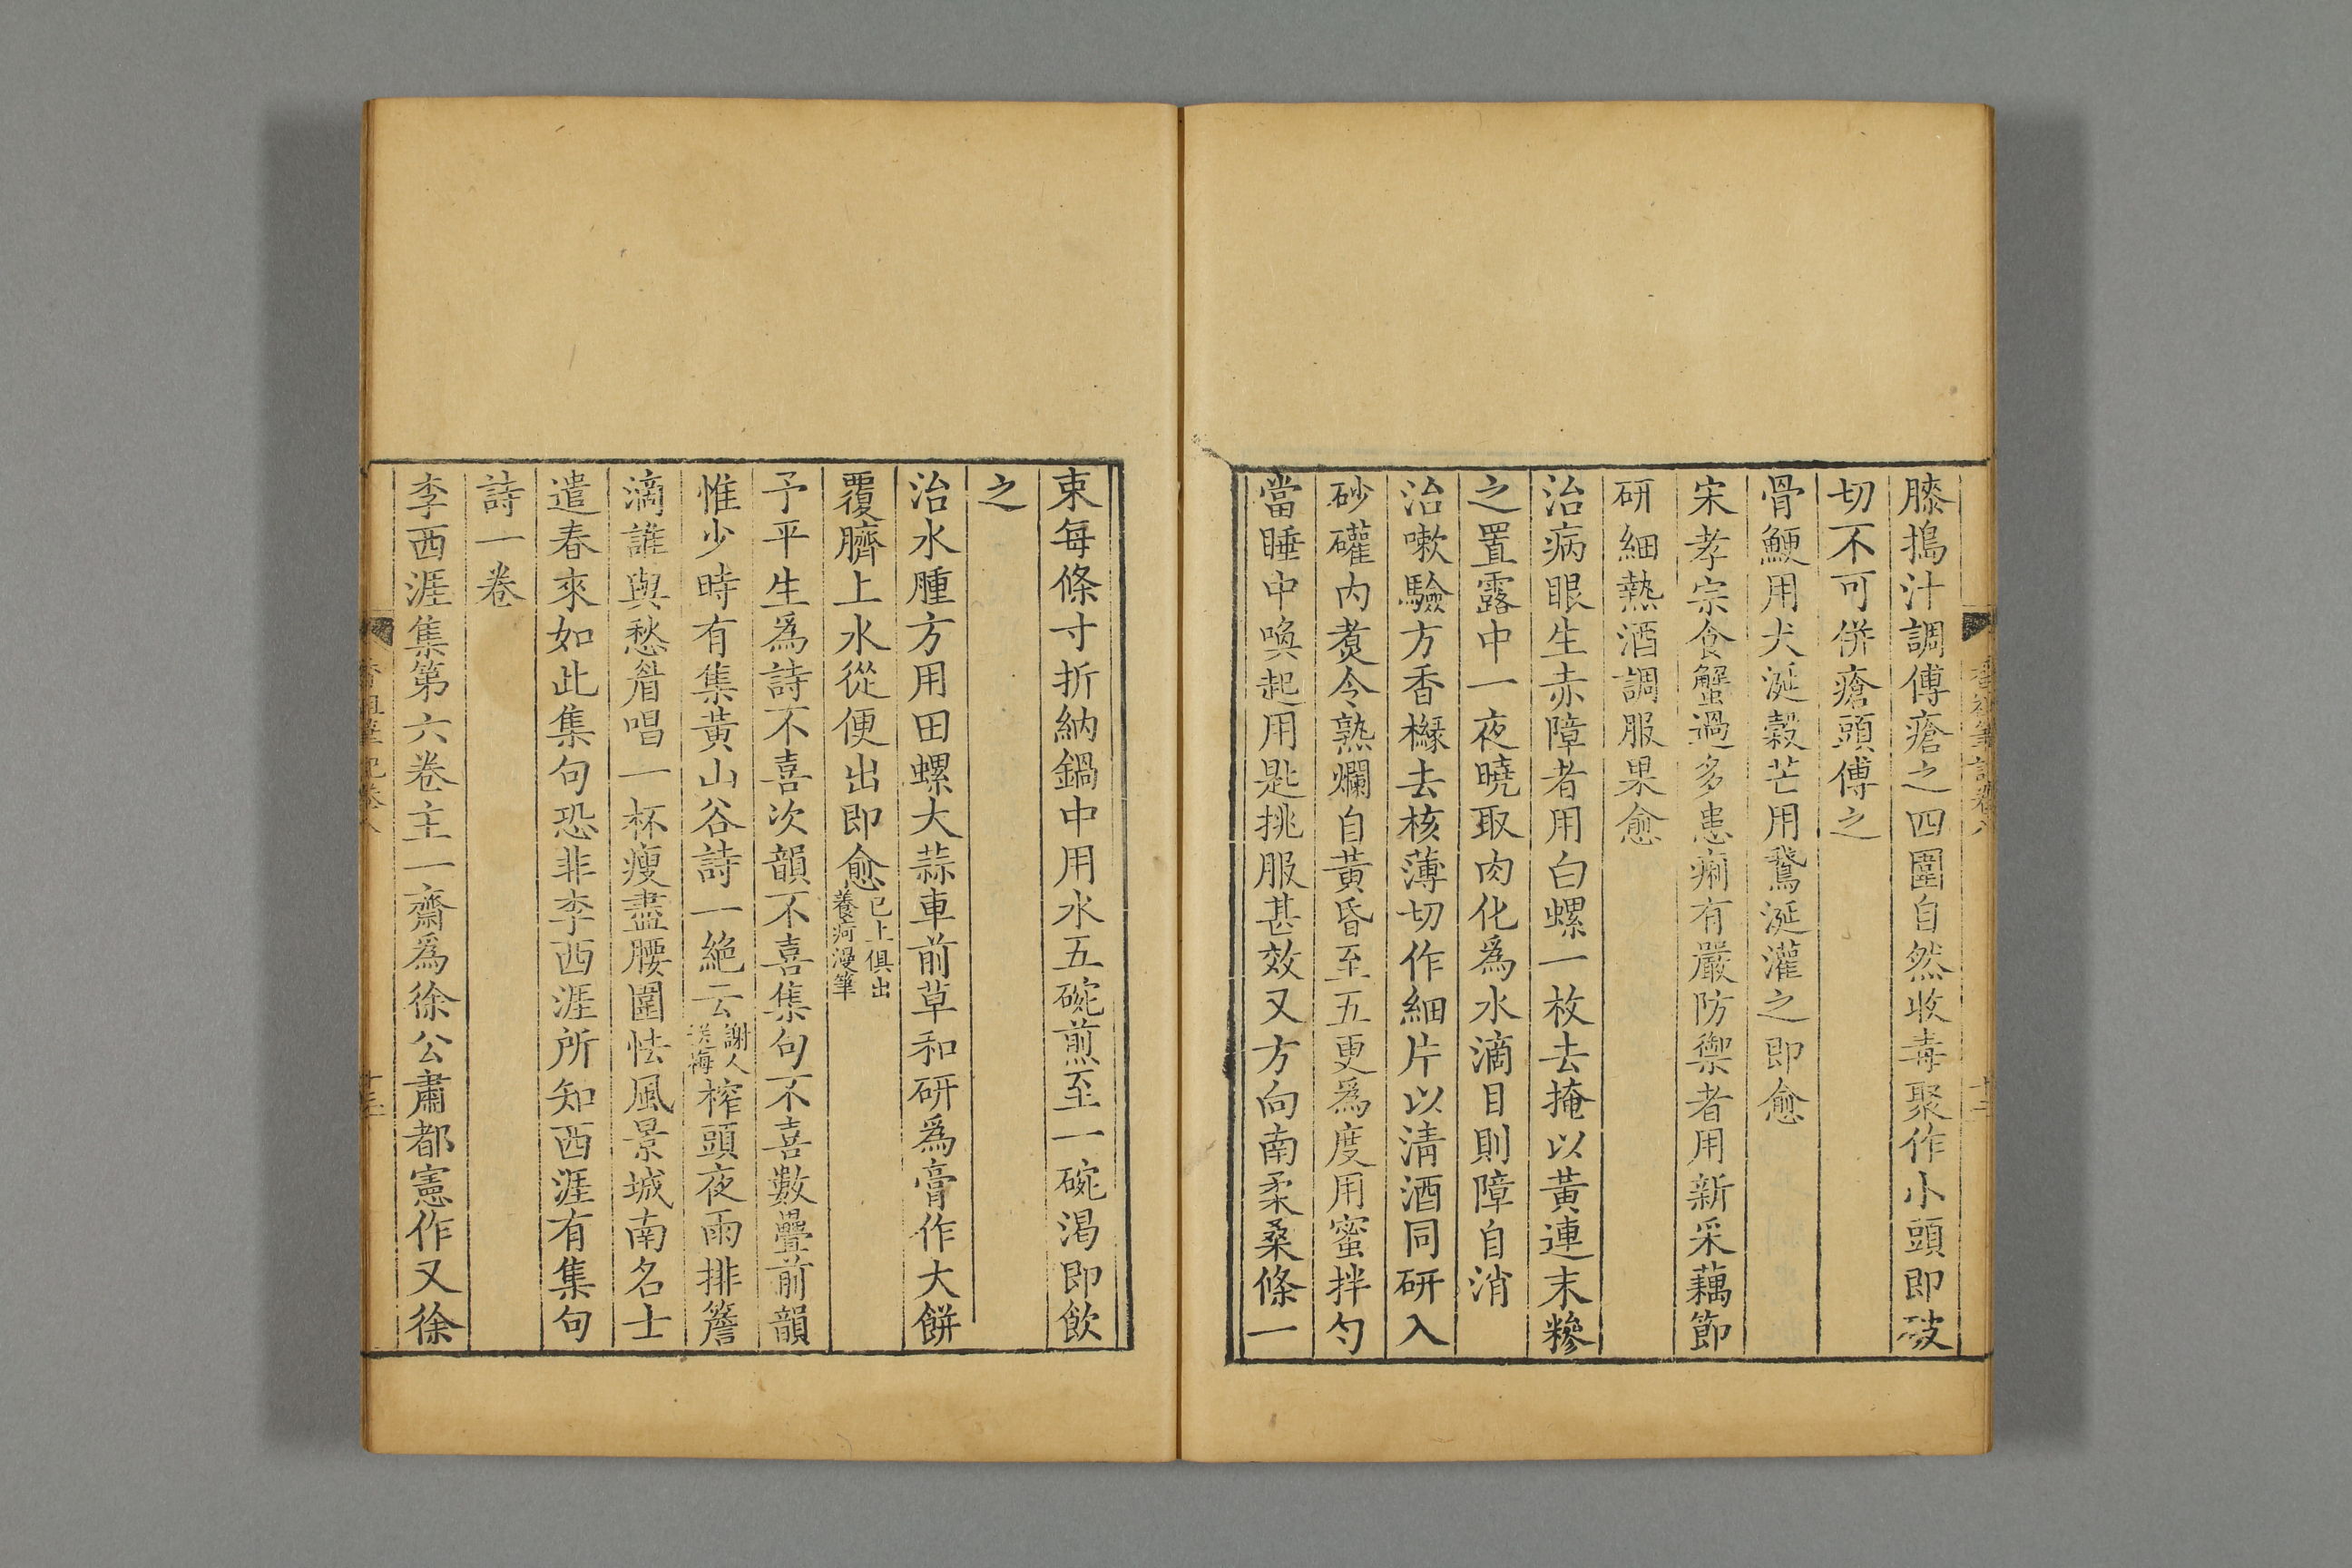 膝搗汁調傅瘡之四圍自然收毒聚作小頭即破
切不可併瘡頭傅之
骨鯁用犬涎穀芒用鵞涎灌之即愈
宋孝宗食蟹過多患痢有嚴防禦者用新采藕節
研細熱酒調服果愈
治病眼生赤障者用白螺一枚去掩以黃連末糝
之置露中一夜曉取肉化爲水滴目則障自消
治嗽驗方香櫞去核薄切作細片以清酒同研入
砂罐内煑令熟爛自黃昏至五更爲度用蜜拌勻
當睡中喚起用匙挑服甚效又方向南柔桑條一
束每條寸折納鍋中用水五碗煎至一碗渴即飲
之
治水腫方用田螺大蒜車前草和研爲膏作大餅
覆臍上水從便出即愈已上俱出養疴漫筆
予平生爲詩不喜次韻不喜集句不喜數疊前韻
惟少時有集黃山谷詩一絶云謝人送梅榨頭夜雨排簷
滴誰與愁眉唱一杯瘦盡腰圍怯風景城南名士
遣春來如此集句恐非李西涯所知西涯有集句
詩一卷
李西涯集第六卷主一齋爲徐公肅都憲作又徐
香祖筆記卷八